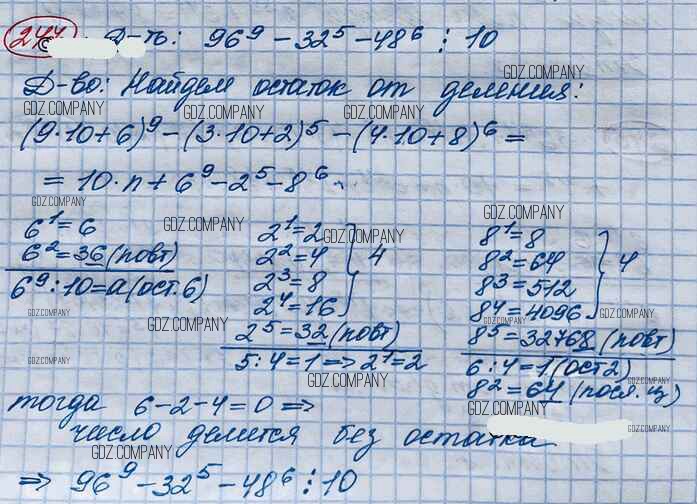 244. Д-ть: 96⁹ - 32⁵ - 48⁶ ⋮ 10
GDZ.COMPANY
Д-во: Найдем остаток от деления:
GDZ.COMPANY GDZ.COMPANY GDZ.COMPANY
(9·10+6)⁹ - (3·10+2)⁵ - (4·10+8)⁶ =
= 10·n + 6⁹ - 2⁵ - 8⁶.
GDZ.COMPANY
GDZ.COMPANY GDZ.COMPANY GDZ.COMPANY
6¹ = 6
6² = 36 (повт)
6⁹ : 10 = a (ост. 6)
2¹ = 2
2² = 4
2³ = 8
2⁴ = 16
} 4
2⁵ = 32 (повт)
5 : 4 = 1 => 2¹ = 2
8¹ = 8
8² = 64
8³ = 512
8⁴ = 4096
} 4
8⁵ = 32768 (повт)
6 : 4 = 1 (ост 2)
8² = 64 (посл. ц)
GDZ.COMPANY GDZ.COMPANY GDZ.COMPANY GDZ.COMPANY
GDZ.COMPANY GDZ.COMPANY
GDZ.COMPANY GDZ.COMPANY
тогда 6 - 2 - 4 = 0 =>
GDZ.COMPANY
число делится без остатка
GDZ.COMPANY GDZ.COMPANY
=> 96⁹ - 32⁵ - 48⁶ ⋮ 10